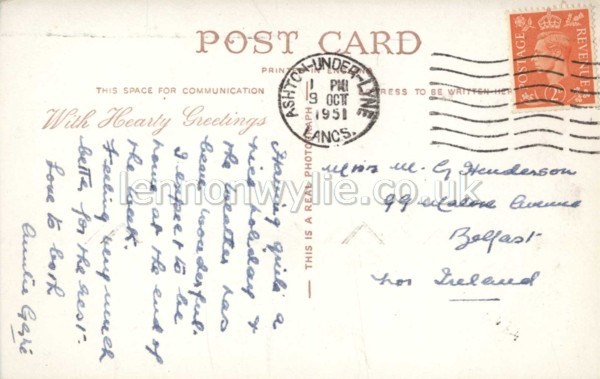 POST CARD
PRINTED IN ENGLAND
THIS SPACE FOR COMMUNICATION
ADDRESS TO BE WRITTEN HERE
With Hearty Greetings
THIS IS A REAL PHOTOGRAPH
ASHTON-UNDER-LYNE
1 PM
9 OCT
1951
LANCS.
POSTAGE
REVENUE
Having quite a
nice holiday &
the weather has
been wonderful.
I expect to be
home at the end of
the week.
Feeling very much
better for the rest.
Love to both
Auntie
Miss M. G Henderson
99 Malone Avenue
Belfast
Nor Ireland
lennonwylie.co.uk